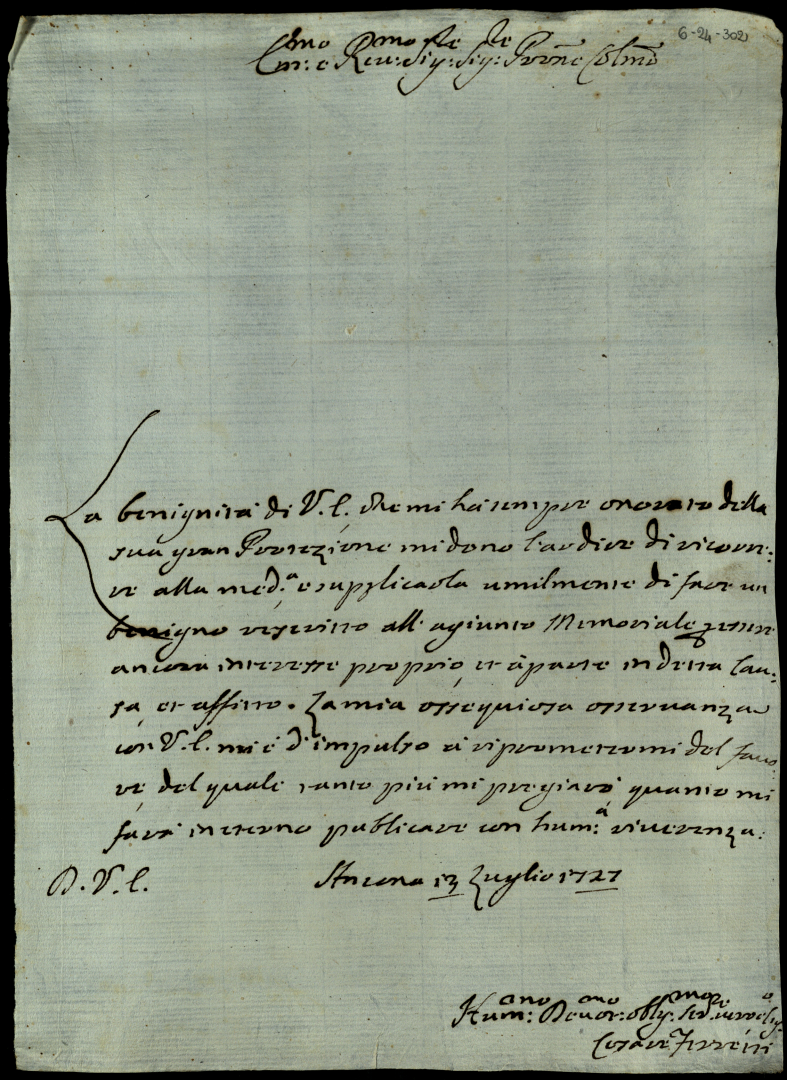 6-24-302
Em:mo e Rev:mo Sig:re Sig:re Prõne Colmõ
La benignità di V. E. che mi hà sempre onorato della
sua gran Protezzione mi dono l'ardire di ricorre:
re alla med:a e supplicarla umilmente di fare un
benigno rescritto all' agiunto Memoriale p essere
ancora interesse proprio, et à parte in detta Cau:
sa, et affitto. La mia ossequiosa osservanza
con V. E. mi è d'impulso à ripromettermi del favo
re del quale tanto più mi pregiarò quanto mi
farà in eterno publicare con hum:a riverenza:
D. V. E.
Ancona 13 Luglio 1727
Hum:mo Devot:mo oblig:mo
Cesare Ferretti